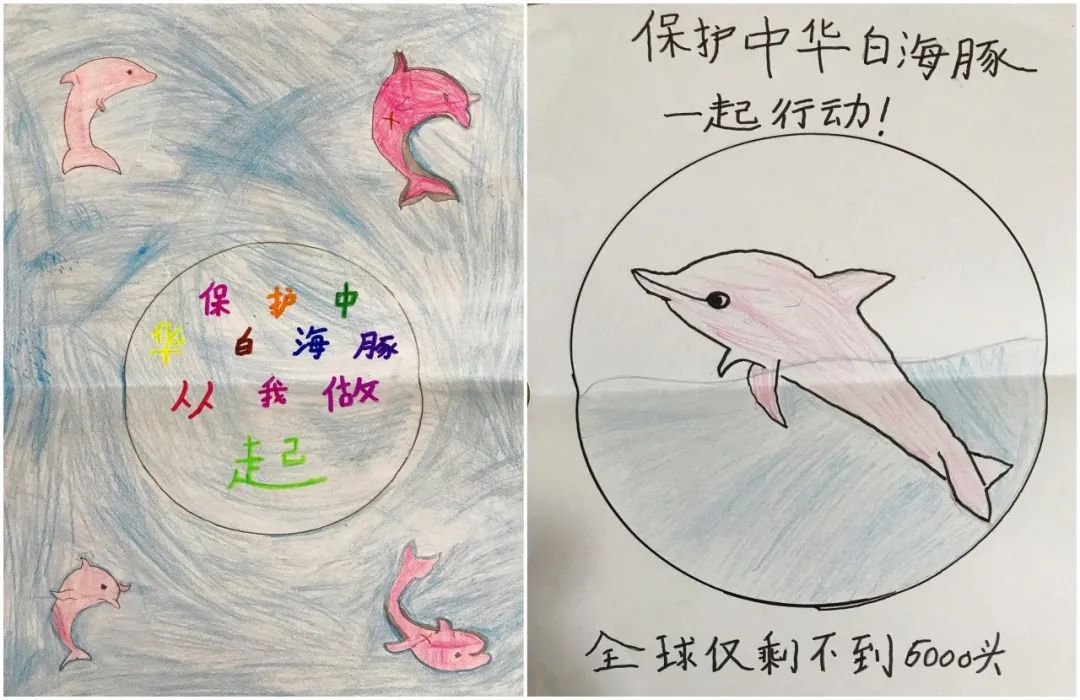 保护中
华白海豚
从我做
起
保护中华白海豚
一起行动!
全球仅剩不到6000头